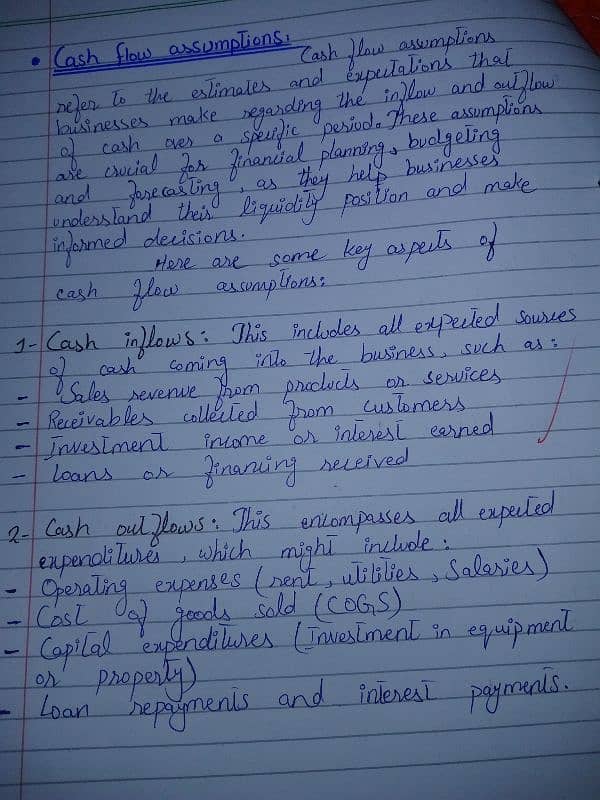 • Cash flow assumptions: Cash flow assumptions
refer to the estimates and expectations that
businesses make regarding the inflow and outflow
of cash over a specific period. These assumptions
are crucial for financial planning, budgeting
and forecasting, as they help businesses
understand their liquidity position and make
informed decisions.
Here are some key aspects of
cash flow assumptions:
1- Cash inflows: This includes all expected sources
of cash coming into the business, such as:
- Sales revenue from products or services
- Receivables collected from customers
- Investment income or interest earned
- Loans or financing received
2- Cash outflows: This encompasses all expected
expenditures, which might include:
- Operating expenses (rent, utilities, Salaries)
- Cost of goods sold (COGS)
- Capital expenditures (Investment in equipment
or property)
- Loan repayments and interest payments.